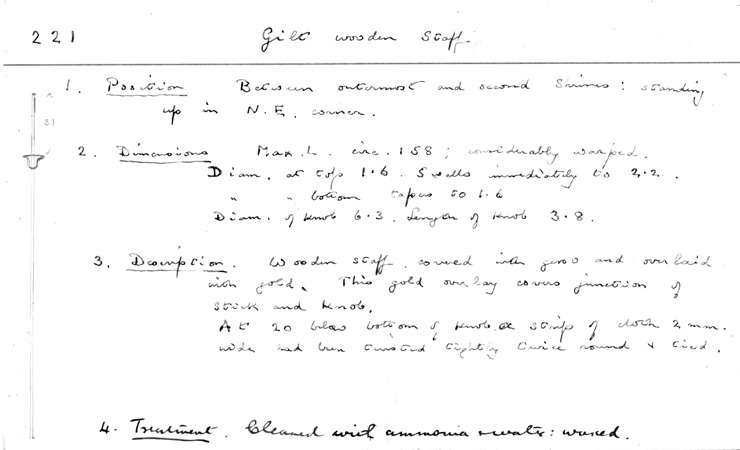 221 Gilt wooden Staff.
1. Position Between outermost and second Shrines : standing
up in N.E. corner.
2. Dimensions Max. L. circ. 158 ; considerably warped.
Diam. at top 1.6. Swells immediately to 2.2.
" " bottom tapers to 1.6
Diam. of knob 6.3. Length of knob 3.8.
3. Description. Wooden staff, covered with gesso and overlaid
with gold. This gold overlay covers junction of
stick and knob.
At 20 below bottom of knob a strip of cloth 2 mm.
wide had been twisted tightly twice round & tied.
4. Treatment. Cleaned with ammonia & water : waxed.